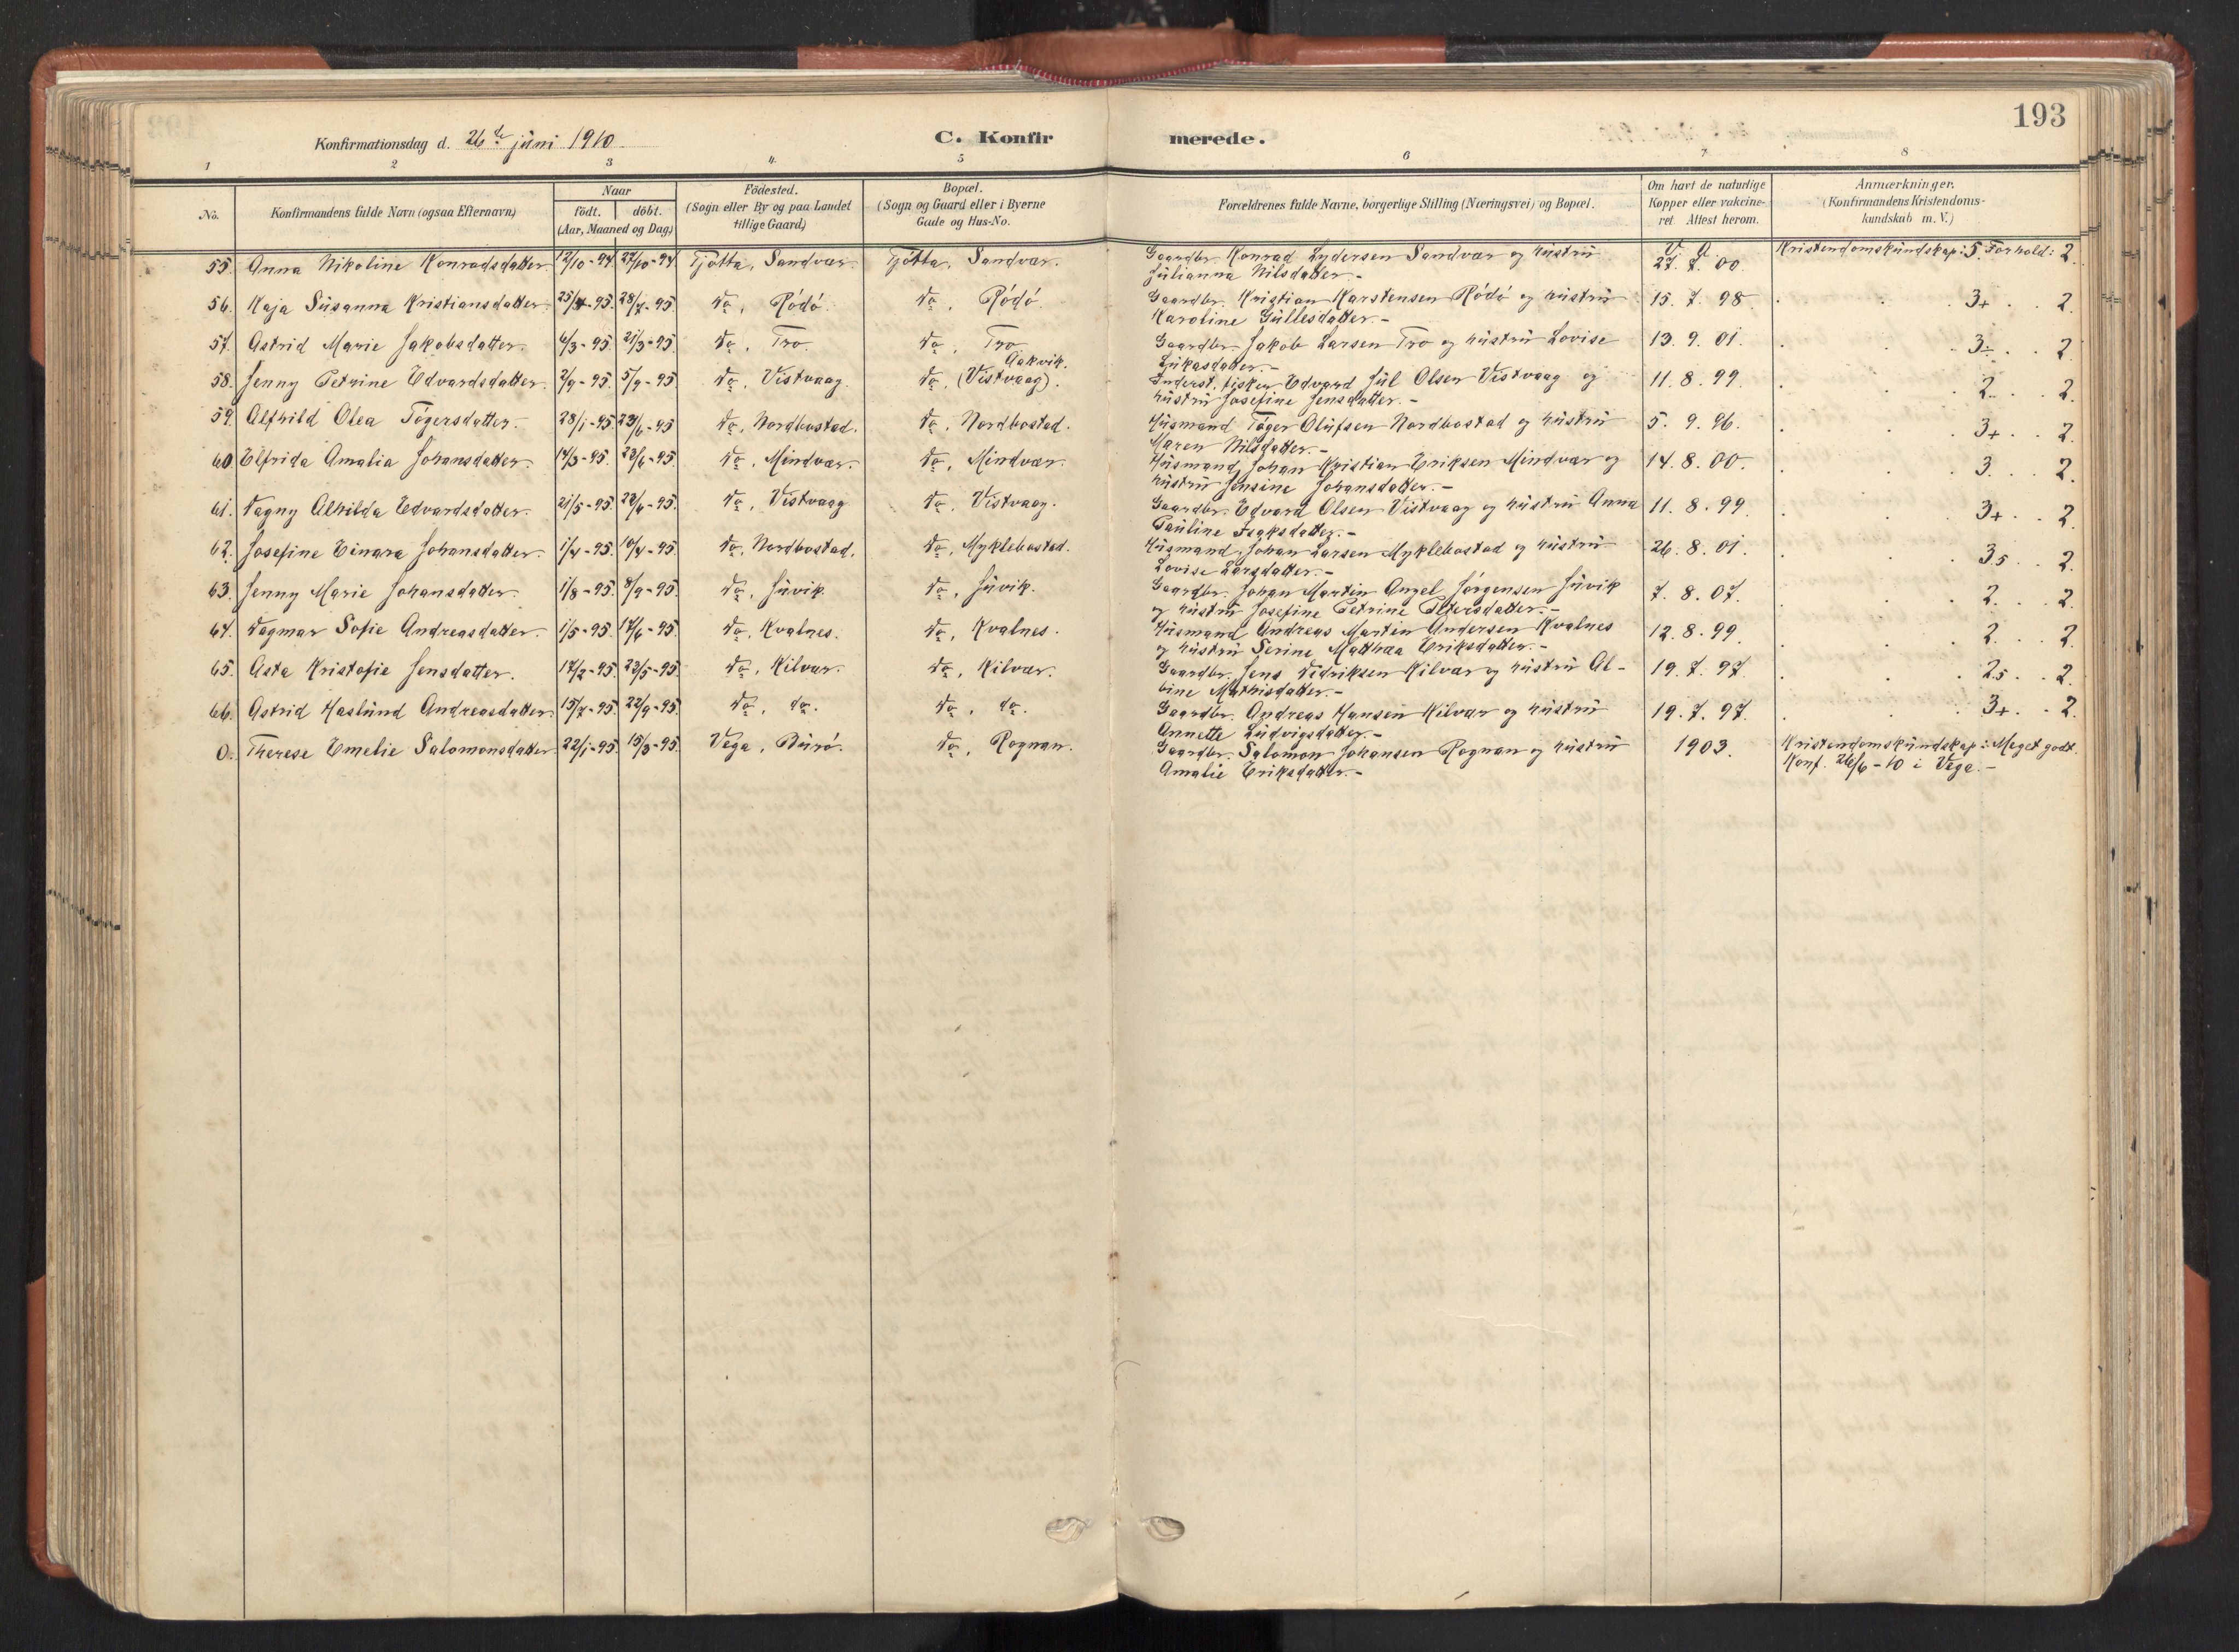 193
Konfirmationsdag d. 26de juni 1910.
C. Konfirmerede.
1 2 3 4 5 6 7 8
No.
Konfirmandens fulde Navn (ogsaa Efternavn)
Naar
født. døbt.
(Aar, Maaned og Dag.)
Födested.
(Sogn eller By og paa Landet
tillige Gaard)
Bopæl.
(Sogn og Gaard eller i Byerne
Gade og Hus-No.
Forældrenes fulde Navne, borgerlige Stilling (Næringsvei) og Bopæl.
Om havt de naturlige
Kopper eller vakcine-
ret. Attest herom.
Anmærkninger.
(Konfirmandens Kristendoms-
kundskab m. V.)
55. Anna Nikoline Konradsdatter. 12/10-94 27/10-94 Tjötta, Sandvær. Tjötta, Sandvær. Gaardbr. Konrad Lydersen Sandvær og hustru V. A. 27. 7. 00. Kristendomskundskap: 5. Forhold: 2
Julianna Nilsdatter.-
56. Kaja Susanna Kristiansdatter. 25/4-95. 28/7-95. do, Rödö. do, Rödö. Gaardbr. Kristian Karstensen Rödö og hustru 15. 7. 98 . . . 3+ . . 2.
Karoline Gullesdatter.-
57. Astrid Marie Jakobsdatter. 6/3-95. 21/3-95. do, Tro. do, Tro. Gaardbr. Jakob Larsen Tro og hustru Lovise 13. 9. 01. . . . 3÷ . . 2.
Lukasdatter.-
58. Jenny Petrine Edvardsdatter. 2/9-95. 5/9-95. do, Vistvaag. do, (Vistvaag). Aakvik. Inderst, fisker Edvard Jul Olsen Vistvaag og 11. 8. 99. . . . 2. . . 2.
hustru Josefine Jensdatter.-
59. Alfhild Olea Tøgersdatter. 28/1-95. 23/6-95 do, Nordbostad. do, Nordbostad. Husmand Tøger Olufsen Nordbostad og hustru 5. 9. 96. . . . 3+ . . 2.
Maren Nilsdatter.-
60. Elfrida Amalia Johansdatter. 14/3-95. 23/6-95. do, Mindvær. do, Mindvær. Husmand Johan Kristian Eriksen Mindvær og 14. 8. 00. . . . 3 . . 2.
hustru Jensine Johansdatter.-
61. Dagny Alhilda Edvardsdatter. 21/5-95. 23/6-95. do, Vistvaag do, Vistvaag. Gaardbr. Edvard Olsen Vistvaag og hustru Anna 11. 8. 99. . . . 3+ . . 2.
Pauline Isaksdatter.-
62. Josefine Einara Johansdatter. 1/4-95. 10/4-95. do, Nordbostad. do, Myklebostad. Husmand Johan Larsen Myklebostad og hustru 26. 8. 01. . . . 3.5 . . 2.
Lovise Larsdatter.-
63. Jenny Marie Johansdatter. 1/8-95. 8/9-95. do, Juvik. do, Juvik. Gaardbr. Johan Martin Angel Jørgensen Juvik 7. 8. 07. . . . 2. . . 2.
og hustru Josefine Petrine Petersdatter.-
64. Dagmar Sofie Andreasdatter. 1/5-95. 17/6-95. do, Kvalnes. do, Kvalnes. Husmand Andreas Martin Andersen Kvalnes 12. 8. 99. . . . 2. . . 2.
og hustru Serine Matthea Eriksdatter.-
65. Asta Kristofie Jensdatter. 17/2-95. 23/5-95. do, Kilvær. do, Kilvær. Gaardbr. Jens Didriksen Kilvær og hustru Al- 19. 7. 97. . . . 2.5 . . 2.
bine Mathisdatter.-
66. Astrid Haslund Andreasdatter. 15/7-95. 22/9-95. do, do. do, do. Gaardbr. Andreas Hansen Kilvær og hustru 19. 7. 97. . . . 3+. . . 2.
Annette Ludvigsdatter.-
0. Therese Emelie Salomonsdatter. 22/1-95. 15/3-95. Vega, Burö. do, Rognan. Gaardbr. Salomon Johansen Rognan og hustru 1903. Kristendomskundskap: Meget godt.
Amalie Eriksdatter.- Konf. 26/6-10 i Vega.-